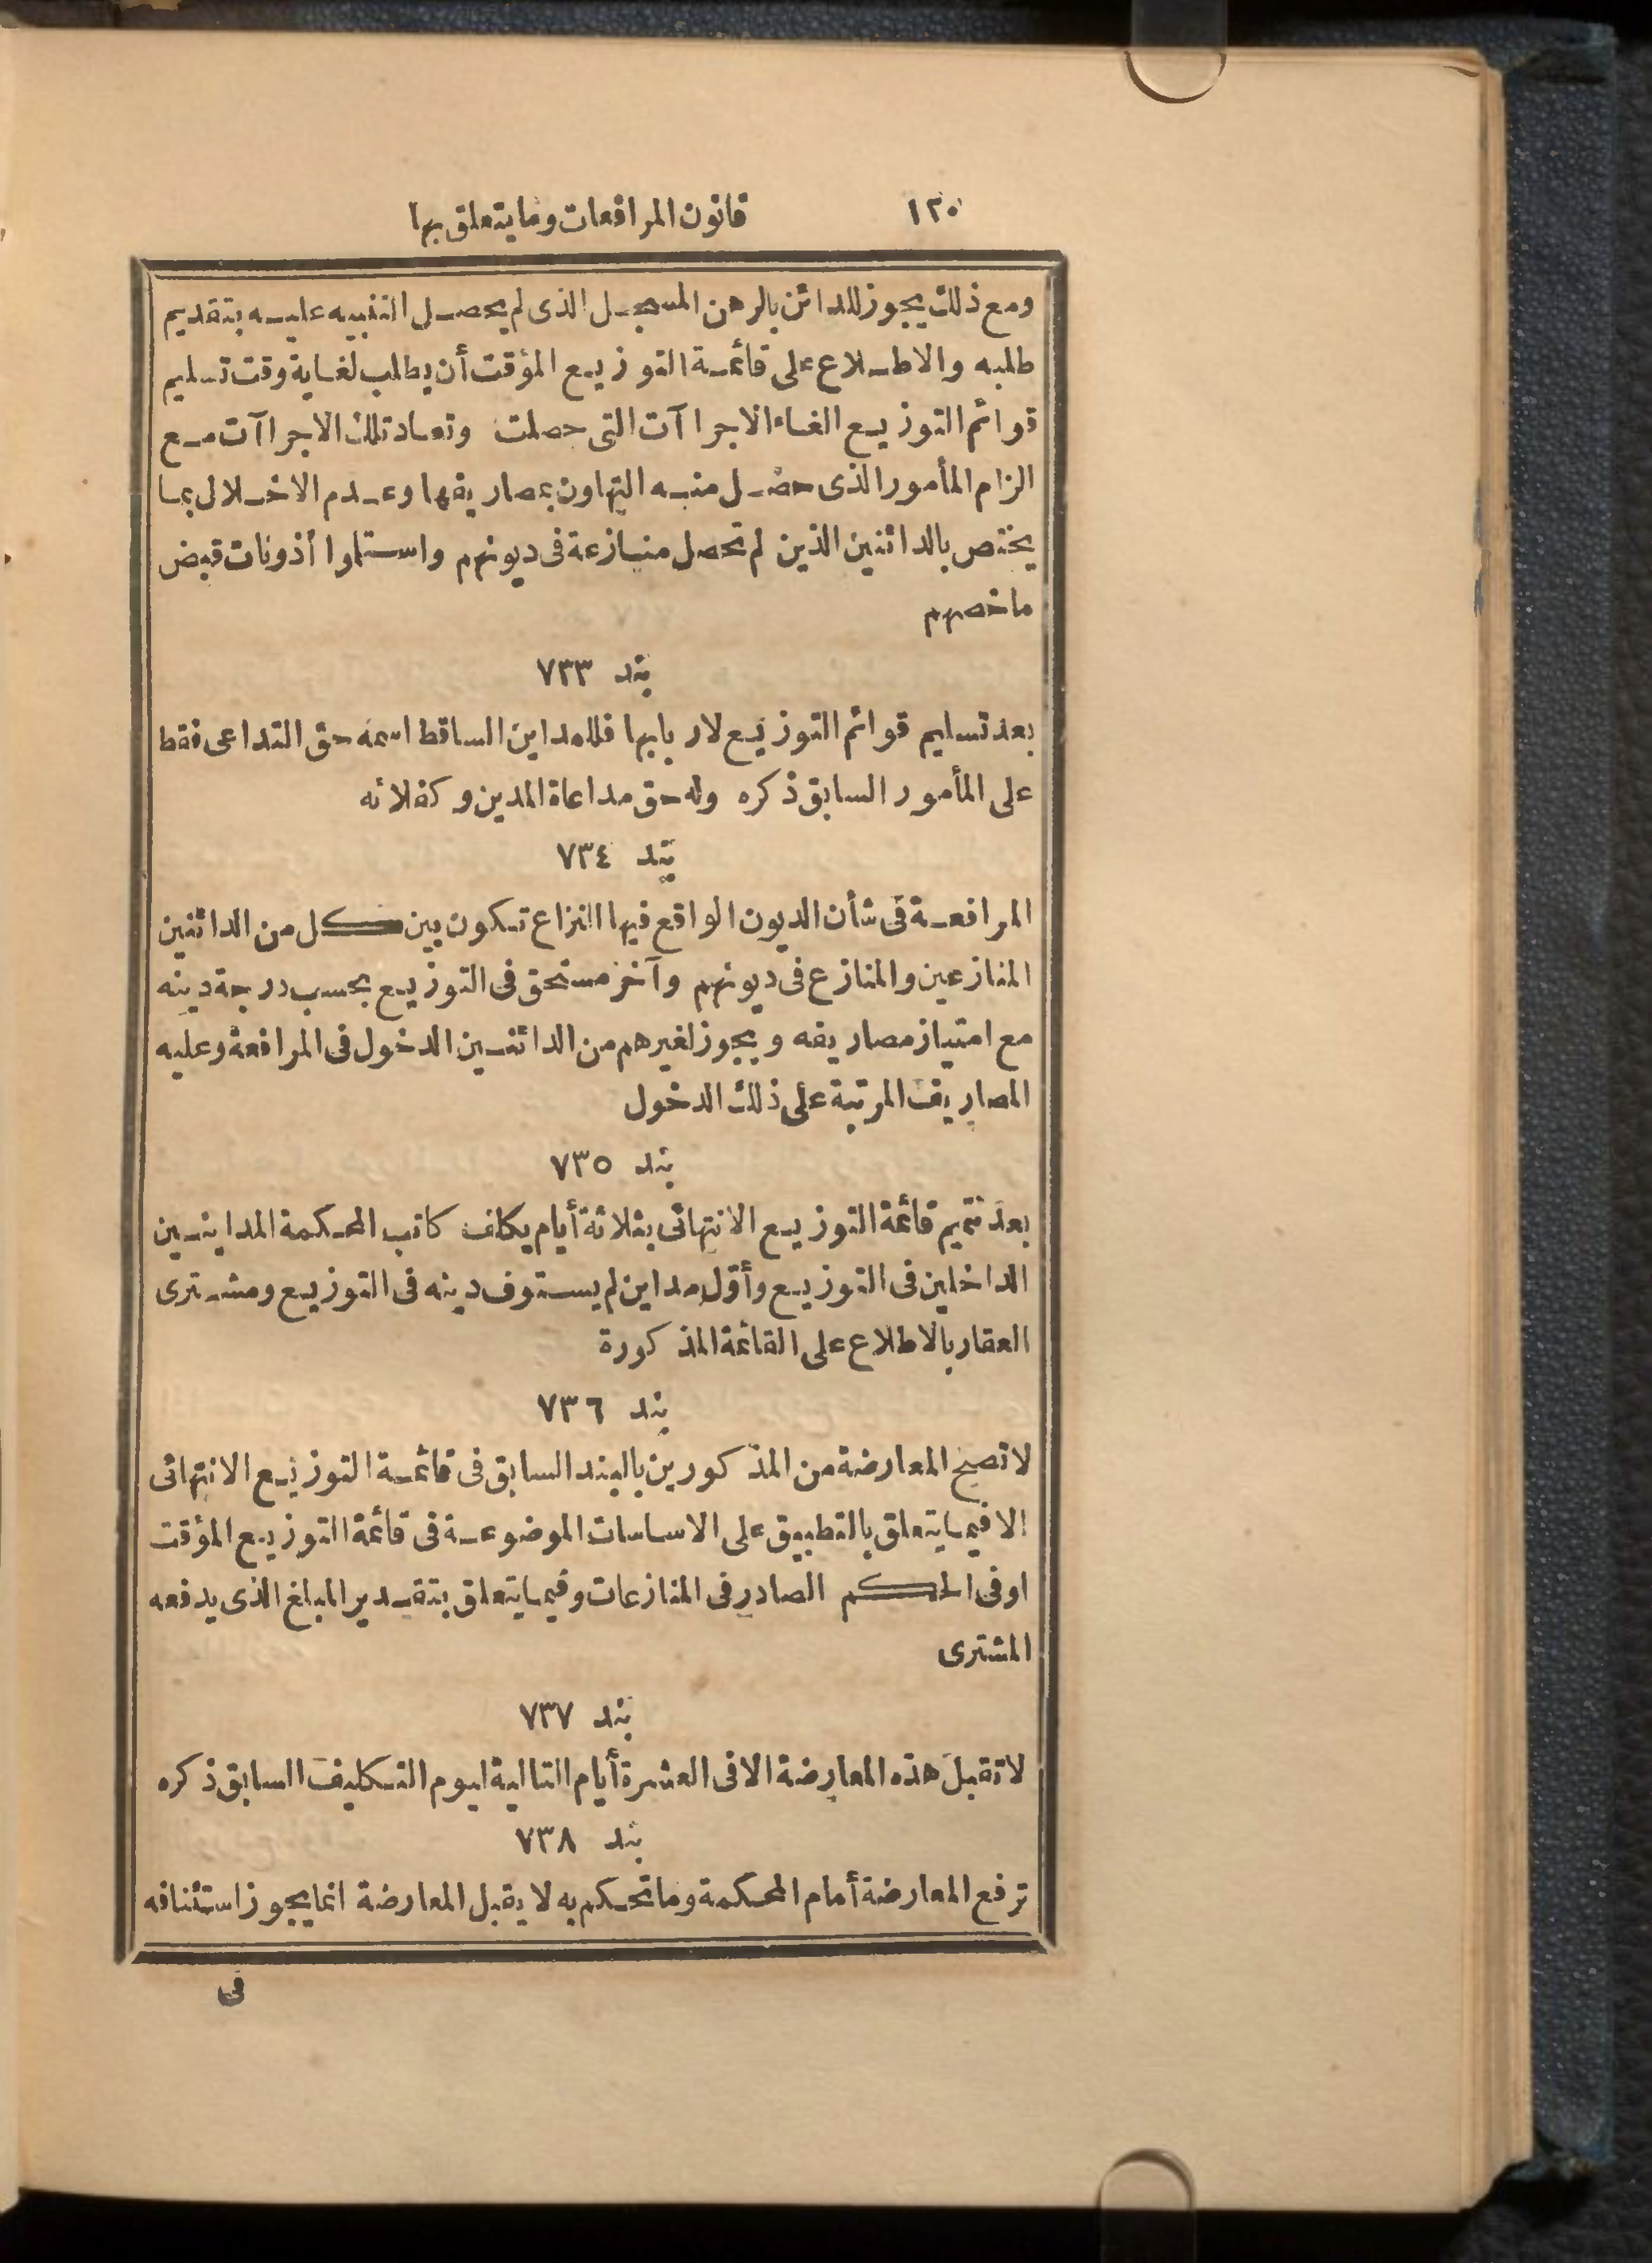 ١٣٠ قانون المرافعات وما يتعلق بها
ومع ذلك يجوز للدائن بالرهن المسجل الذى لم يحصل التنبيه عليه بتقديم
طلبه والاطلاع على قائمة التوزيع المؤقت أن يطلب لغاية وقت تسليم
قوائم التوزيع الغاء الاجراآت التى حصلت وتعاد تلك الاجراآت مع
الزام المأمور الذى حصل منه التهاون بمصاريفها وعدم الاخلال بما
يختص بالدائنين الذين لم تحصل منازعة فى ديونهم واستلموا أذونات قبض
ما خصهم
بند ٧٣٣
بعد تسليم قوائم التوزيع لاربابها فللمداين الساقط اسمه حق التداعى فقط
على المأمور السابق ذكره وله حق مداعاة المدين وكفلائه
بند ٧٣٤
المرافعة فى شأن الديون الواقع فيها النزاع تكون بين كل من الدائنين
المنازعين والمنازع فى ديونهم وآخر مستحق فى التوزيع بحسب درجة دينه
مع امتياز مصاريفه ويجوز لغيرهم من الدائنين الدخول فى المرافعة وعليه
المصاريف المرتبة على ذلك الدخول
بند ٧٣٥
بعد تتميم قائمة التوزيع الانتهائى بثلاثة أيام يكلف كاتب المحكمة المداينين
الداخلين فى التوزيع وأول مداين لم يستوف دينه فى التوزيع ومشترى
العقار بالاطلاع على القائمة المذكورة
بند ٧٣٦
لا تصح المعارضة من المذكورين بالبند السابق فى قائمة التوزيع الانتهائى
الا فيما يتعلق بالتطبيق على الاساسات الموضوعة فى قائمة التوزيع المؤقت
او فى الحكم الصادر فى المنازعات وفيما يتعلق بتقدير المبلغ الذى يدفعه
المشترى
بند ٧٣٧
لا تقبل هذه المعارضة الا فى العشرة أيام التالية ليوم التكليف السابق ذكره
بند ٧٣٨
ترفع المعارضة أمام المحكمة وما تحكم به لا يقبل المعارضة انما يجوز استئنافه
فى